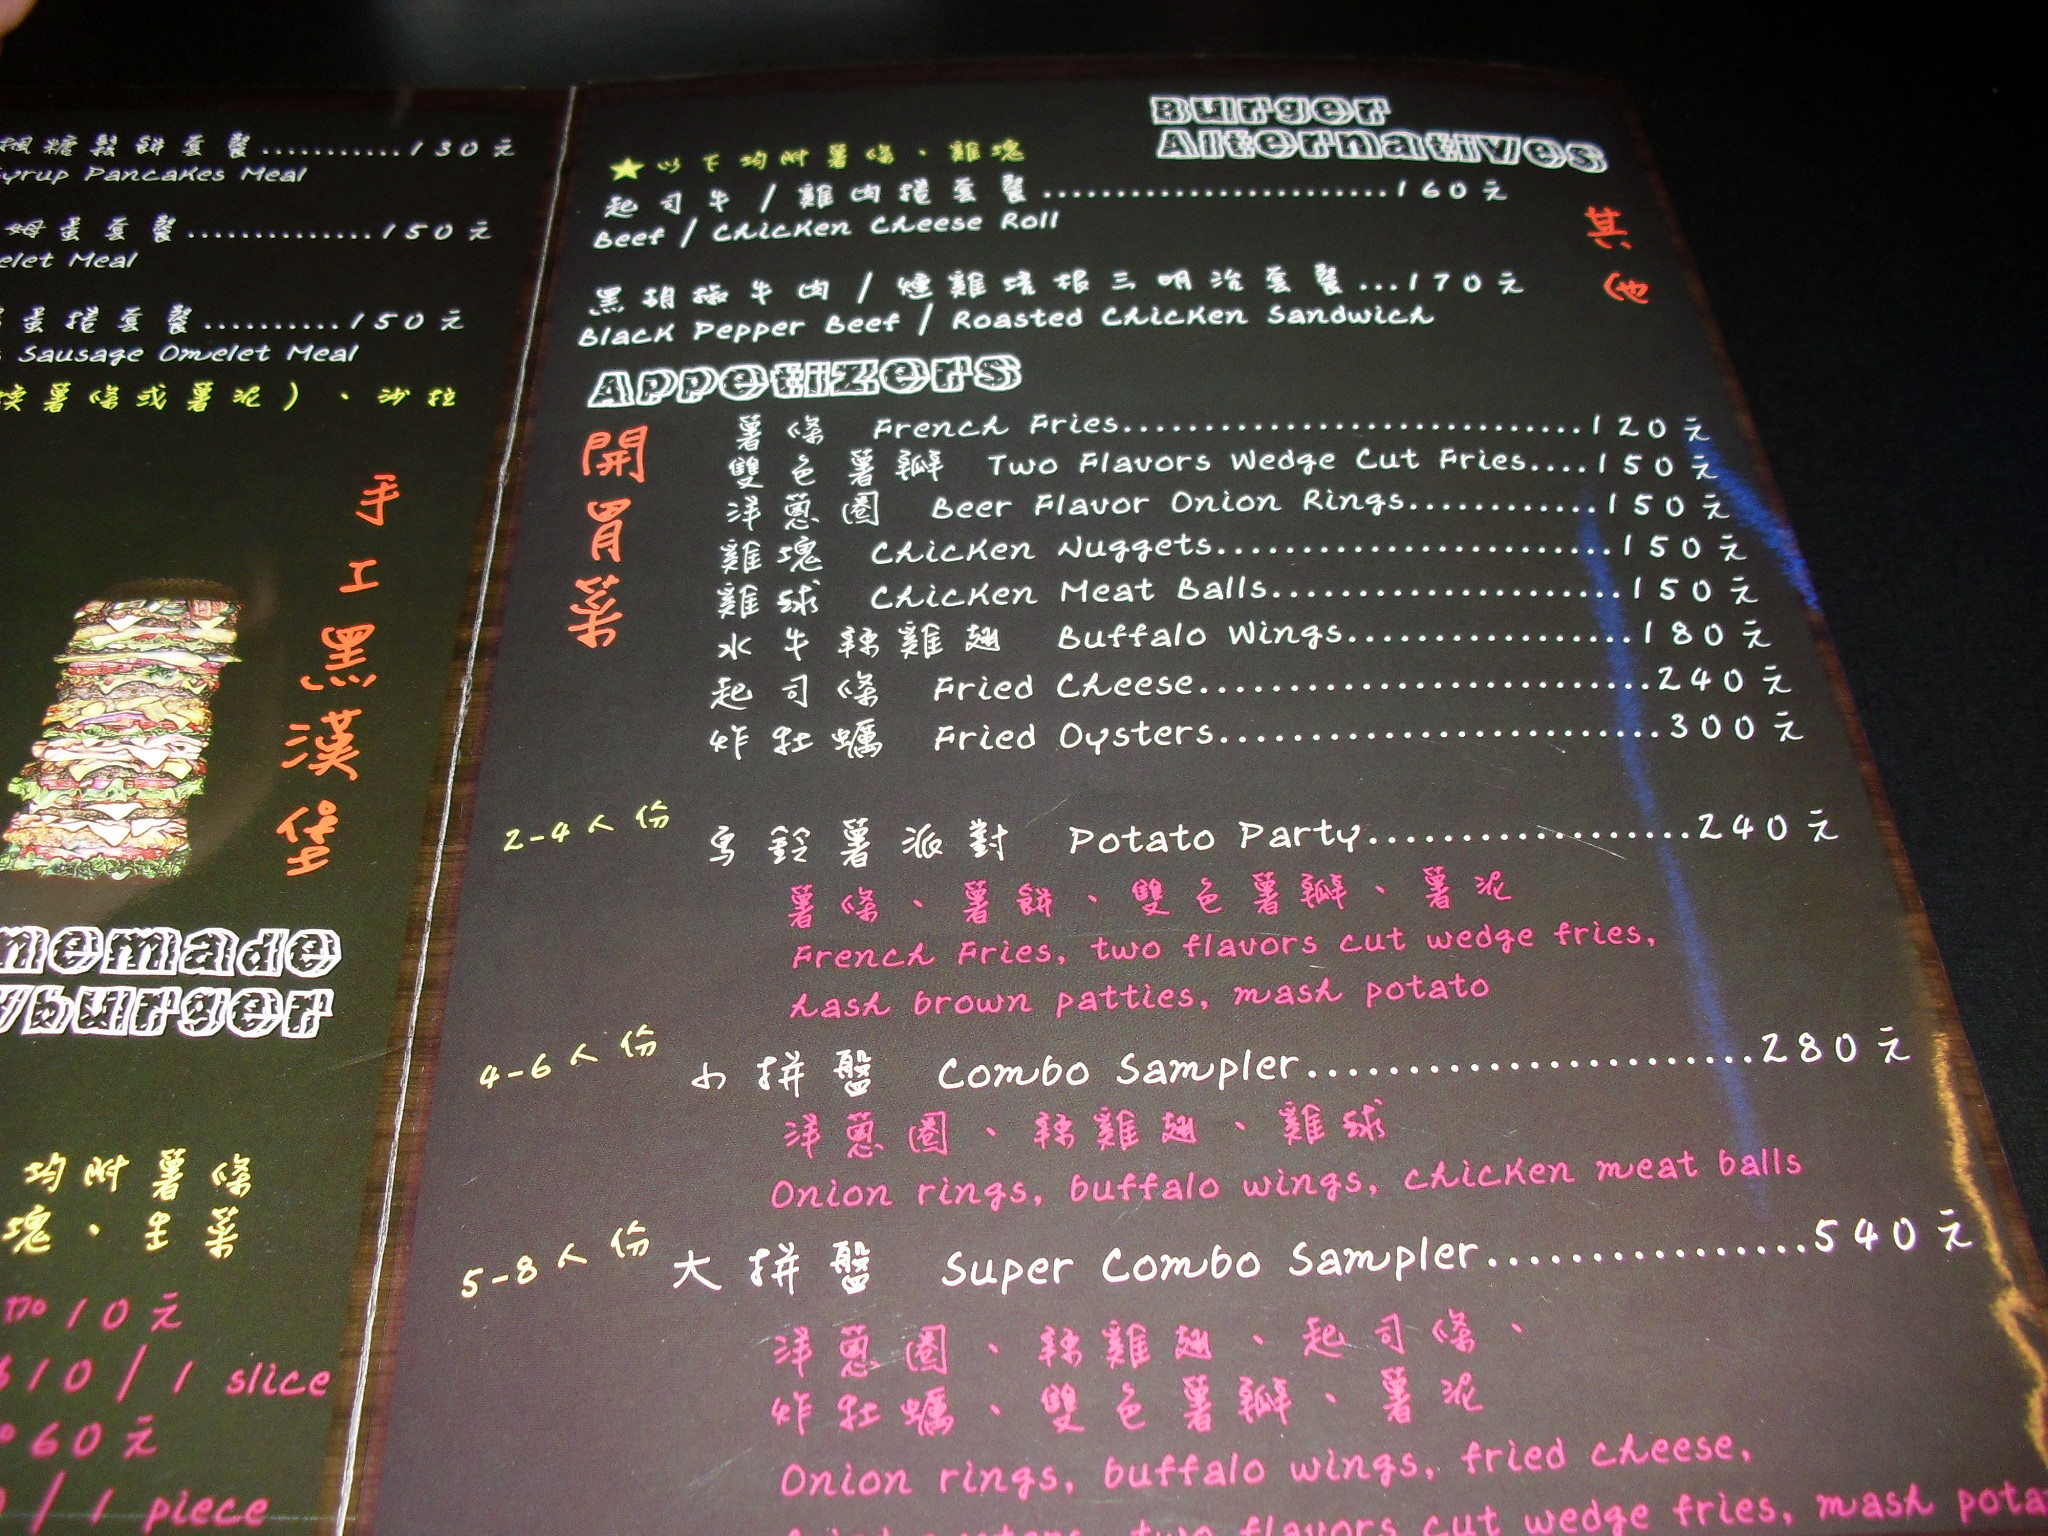 楓糖鬆餅套餐............130元
Syrup Pancakes Meal
姆蛋套餐...............150元
elet Meal
蛋捲套餐..........150元
Sausage Omelet Meal
換薯條或薯泥)、沙拉
手工黑漢堡
memade
burger
均附薯條
塊、生菜
10元
$10/1 slice
60元
/1 piece
Burger
Alternatives
其他
★以下均附薯條、雞塊
起司牛/雞肉捲套餐........................160元
Beef / Chicken Cheese Roll
黑胡椒牛肉/燻雞培根三明治套餐...170元
Black Pepper Beef / Roasted Chicken Sandwich
Appetizers
開胃菜
薯條 French Fries...............................120元
雙色薯瓣 Two Flavors Wedge Cut Fries....150元
洋蔥圈 Beer Flavor Onion Rings.............150元
雞塊 Chicken Nuggets...........................150元
雞球 Chicken Meat Balls........................150元
水牛辣雞翅 Buffalo Wings...................180元
起司條 Fried Cheese..............................240元
炸牡蠣 Fried Oysters.............................300元
2-4人份 烏鈴薯派對 Potato Party..................240元
薯條、薯餅、雙色薯瓣、薯泥
French Fries, two flavors cut wedge fries,
hash brown patties, mash potato
4-6人份 小拼盤 Combo Sampler.......................280元
洋蔥圈、辣雞翅、雞球
Onion rings, buffalo wings, chicken meat balls
5-8人份 大拼盤 Super Combo Sampler................540元
洋蔥圈、辣雞翅、起司條、
炸牡蠣、雙色薯瓣、薯泥
Onion rings, buffalo wings, fried cheese,
two flavors cut wedge fries, mash pota